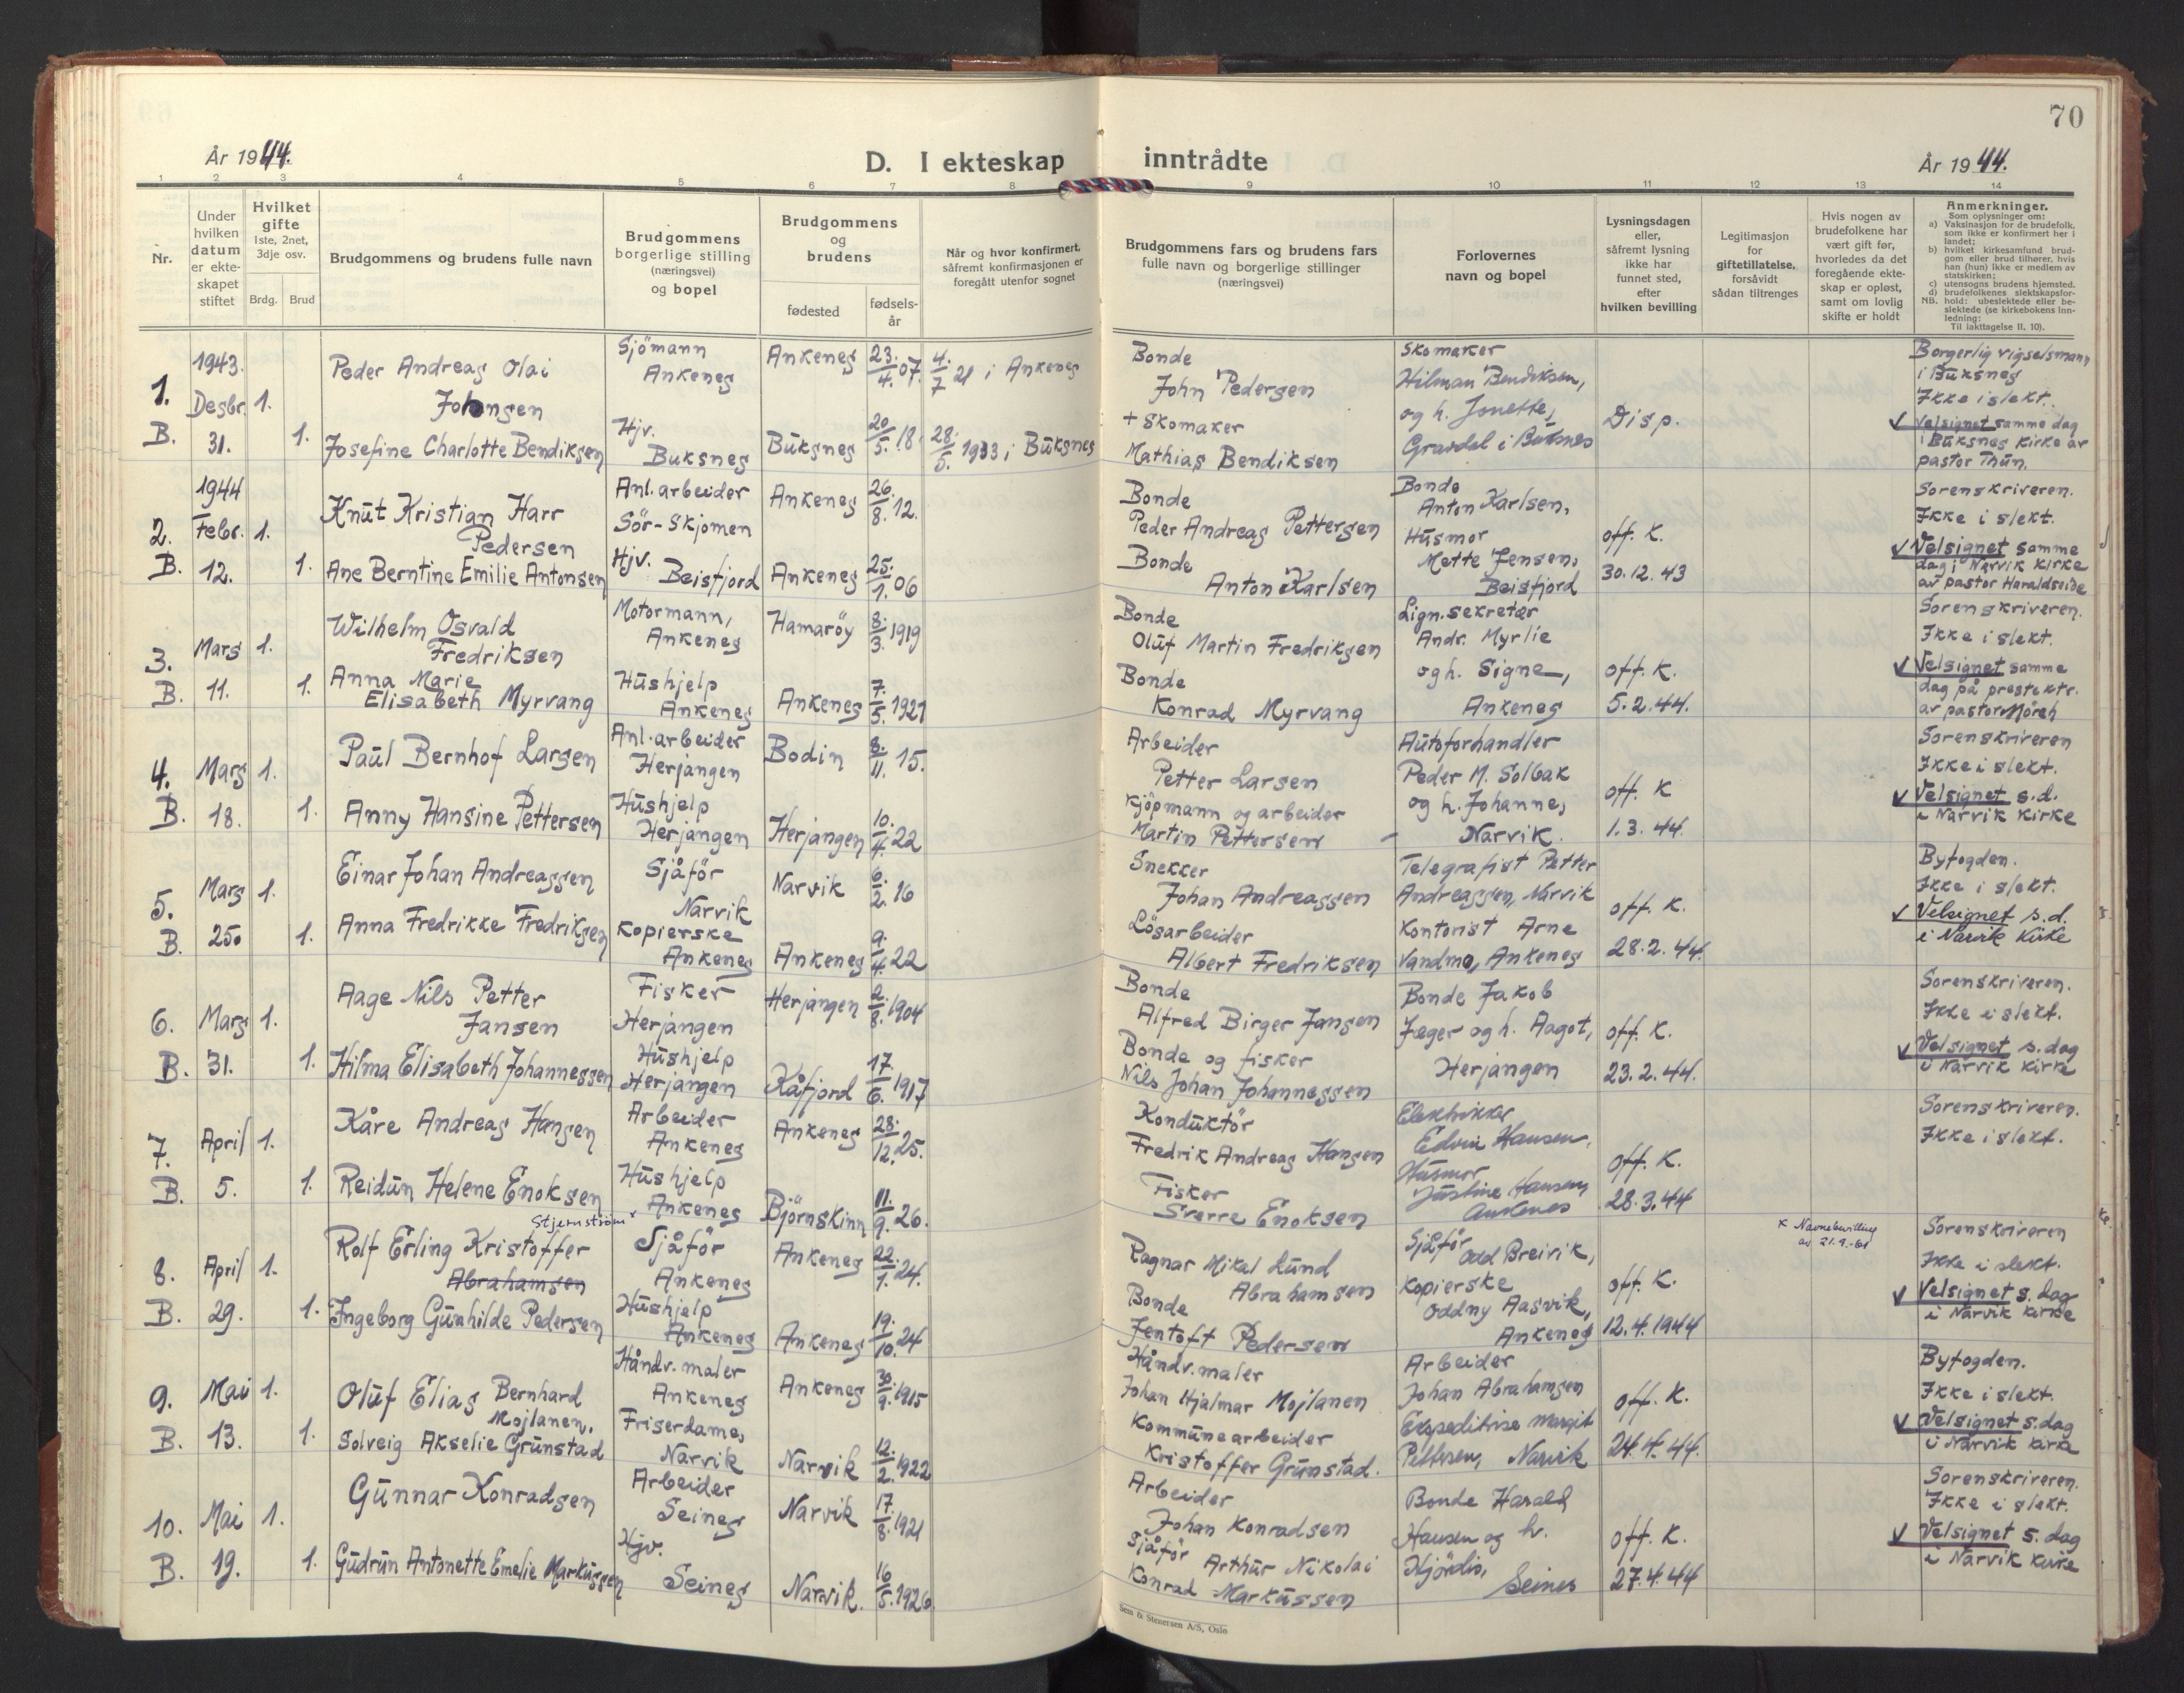 70
År 1944.
D. I ekteskap inntrådte
År 1944.
1 2 3 4 5 6 7 8 9 10 11 12 13 14
Nr.
Under
hvilken
datum
er ekte-
skapet
stiftet
Hvilket
gifte
1ste, 2net,
3dje osv.
Brdg. Brud
Brudgommens og brudens fulle navn
Brudgommens
borgerlige stilling
(næringsvei)
og bopel
Brudgommens
og
brudens
fødested
fødsels-
år
Når og hvor konfirmert,
såfremt konfirmasjonen er
foregått utenfor sognet
Brudgommens fars og brudens fars
fulle navn og borgerlige stillinger
(næringsvei)
Forlovernes
navn og bopel
Lysningsdagen
eller,
såfremt lysning
ikke har
funnet sted,
efter
hvilken bevilling
Legitimasjon
for
giftetillatelse,
forsåvidt
sådan tiltrenges
Hvis nogen av
brudefolkene har
vært gift før,
hvorledes da det
foregående ekte-
skap er opløst,
samt om lovlig
skifte er holdt
Anmerkninger.
Som oplysninger om:
a) Vaksinasjon for de brudefolk,
som ikke er konfirmert her i
landet;
b) hvilket kirkesamfund brud-
gom eller brud tilhører, hvis
han (hun) ikke er medlem av
statskirken;
c) utensogns brudens hjemsted.
d) brudefolkenes slektskapsfor-
NB. hold: ubeslektede eller be-
slektede (se kirkebokens inn-
ledning:
Til iakttagelse II. 10).
1.
B.
1943.
Desbr.
31.
1.
1.
Peder Andreas Olai
Johansen
Josefine Charlotte Bendiksen
Sjömann
Ankenes
Hjv.
Buksnes
Ankenes 23/4. 07.
Buksnes 20/5. 18.
4/7 21 i Ankenes
28/5. 1933 i Buksnes
Bonde
John Pedersen
+ Skomaker
Mathias Bendiksen
Skomaker
Hilman Bendiksen,
og h. Jonette,
Gravdal i Buksnes
Disp.
Borgerlig vigselsmann
i Buksnes
Ikke i slekt.
Velsignet samme dag
i Buksnes kirke av
pastor Thun.
2.
B.
1944
Febr.
12.
1.
1.
Knut Kristian Harr
Pedersen
Ane Berntine Emilie Antonsen
Anl. arbeider
Sör-Skjomen
Hjv.
Beisfjord
Ankenes 26/8. 12.
Ankenes 25/1. 06
Bonde
Peder Andreas Pettersen
Bonde
Anton Karlsen
Bonde
Anton Karlsen,
Husmor
Mette Jensen,
Beisfjord
off. K.
30.12.43
Sorenskriveren.
Ikke i slekt.
Velsignet samme
dag i Narvik kirke
av pastor Haraldseide
3.
B.
Mars
11.
1.
1.
Wilhelm Osvald
Fredriksen
Anna Marie
Elisabeth Myrvang
Motormann,
Ankenes
Hushjelp
Ankenes
Hamaröy 8/3. 1919
Ankenes 7/5. 1921
Bonde
Oluf Martin Fredriksen
Bonde
Konrad Myrvang
Lign.sekretær
Andr. Myrlie
og h. Signe,
Ankenes
off. K.
5.2.44.
Sorenskriveren.
Ikke i slekt.
Velsignet samme
dag på prestektr.
av pastor Mörch
4.
B.
Mars
18.
1.
1.
Paul Bernhof Larsen
Anny Hansine Pettersen
Anl. arbeider
Herjangen
Hushjelp
Herjangen
Bodin 8/11. 15.
Herjangen 10/4. 22
Arbeider
Petter Larsen
Kjöpmann og arbeider
Martin Pettersen
Autoforhandler
Peder M. Solbak
og h. Johanne,
Narvik.
off. K
1.3.44.
Sorenskriveren
Ikke i slekt.
Velsignet s.d.
i Narvik kirke
5.
B.
Mars
25.
1.
1.
Einar Johan Andreassen
Anna Fredrikke Fredriksen
Sjåför
Narvik
Kopierske
Ankenes
Narvik 6/2. 16
Ankenes 9/4. 22
Snekker
Johan Andreassen
Lösarbeider
Albert Fredriksen
Telegrafist Petter
Andreassen, Narvik
Kontorist Arne
Vandmo, Ankenes
off. K.
28.2.44.
Byfogden.
Ikke i slekt.
Velsignet s.d.
i Narvik kirke
6.
B.
Mars
31.
1.
1.
Aage Nils Petter
Jansen
Hilma Elisabeth Johannessen
Fisker
Herjangen
Hushjelp
Herjangen
Herjangen 2/8. 1904
Kåfjord 17/6. 1917
Bonde
Alfred Birger Jansen
Bonde og fisker
Nils Johan Johannessen
Bonde Jakob
Jæger og h. Aagot,
Herjangen
off. K.
23.2.44.
Sorenskriveren.
Ikke i slekt.
Velsignet s.dag
i Narvik kirke
7.
B.
April
5.
1.
1.
Kåre Andreas Hansen
Reidun Helene Enoksen
Arbeider
Ankenes
Hushjelp
Ankenes
Ankenes 28/12. 25.
Björnskinn 11/9. 26.
Konduktör
Fredrik Andreas Hansen
Fisker
Sverre Enoksen
Elektriker
Edvin Hansen,
Husmor
Justine Hansen,
Ankenes
off. K.
28.3.44
Sorenskriveren.
Ikke i slekt.
8.
B.
April
29.
1.
1.
Stjernström x
Rolf Erling Kristoffer
Abrahamsen
Ingeborg Gunhilde Pedersen
Sjåför
Ankenes
Hushjelp
Ankenes
Ankenes 22/1. 24.
Ankenes 19/10. 24
Ragnar Mikal Lund
Abrahamsen
Bonde
Jentoft Pedersen
Sjåför
Odd Breivik,
Kopierske
Oddny Aasvik,
Ankenes
off. K.
12.4.1944
x Navnebevilling
av 21.9.-61
Sorenskriveren
Ikke i slekt.
Velsignet s. dag
i Narvik kirke
9.
B.
Mai
13.
1.
1.
Oluf Elias Bernhard
Mojlanen,
Solveig Akselie Grunstad
Håndv. maler
Ankenes
Friserdame,
Narvik
Ankenes 30/9. 1915
Narvik 12/2. 1922
Håndv. maler
Johan Hjalmar Mojlanen
Kommunearbeider
Kristoffer Grunstad.
Arbeider
Johan Abrahamsen
Ekspeditrise Margit
Pettersen, Narvik
off. K.
24.4.44.
Byfogden.
Ikke i slekt.
Velsignet s.dag
i Narvik kirke
10.
B.
Mai
19.
1.
1.
Gunnar Konradsen
Gudrun Antonette Emelie Markussen
Arbeider
Seines
Hjv.
Seines
Narvik 17/8. 1921
Narvik. 16/5. 1926.
Arbeider
Johan Konradsen
Sjåför Arthur Nikolai
Konrad Markussen
Bonde Harald
Hansen og h.
Hjördis,
Seines
off. K.
27.4.44
Sorenskriveren.
Ikke i slekt.
Velsignet s. dag
i Narvik kirke
Sem & Stenersen A/S, Oslo